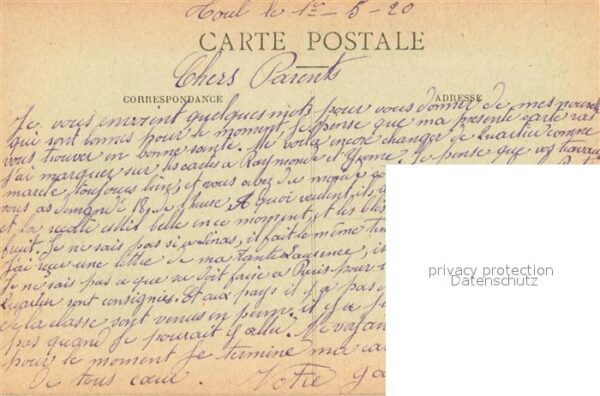 Toul le 1er - 5 - 20
CARTE POSTALE
Chers Parents
CORRESPONDANCE ADRESSE
Je vous envoint quelques mots pour vous donner de mes nouvel
qui sont bonnes pour le moment, Je pense que ma presente carte
vous trouver en bonne santé. Me voilez encore changer de Quartier comme
j'ai marquer sur les cartes a Raymonde et Yvonne. Je pense que vos travaux
marche toujours bien, et vous
vous as demandé 18 de l'heure. A quoi veulent ils
et la recolte est il belle en ce moment, et les blés
fruit. Je ne sais pas si a il fait le même
J'ai reçu une lettre de ma tante Laurence,
Je ne sais pas a que se doit faire a Paris pour
Quartier sont consignées. Et aux pays il y a pas
de la classe sont venus en perm. il y a
pas quand je pourait y aller. Ne
pour le moment je termine ma
De tous cœur. Votre
privacy protection
Datenschutz